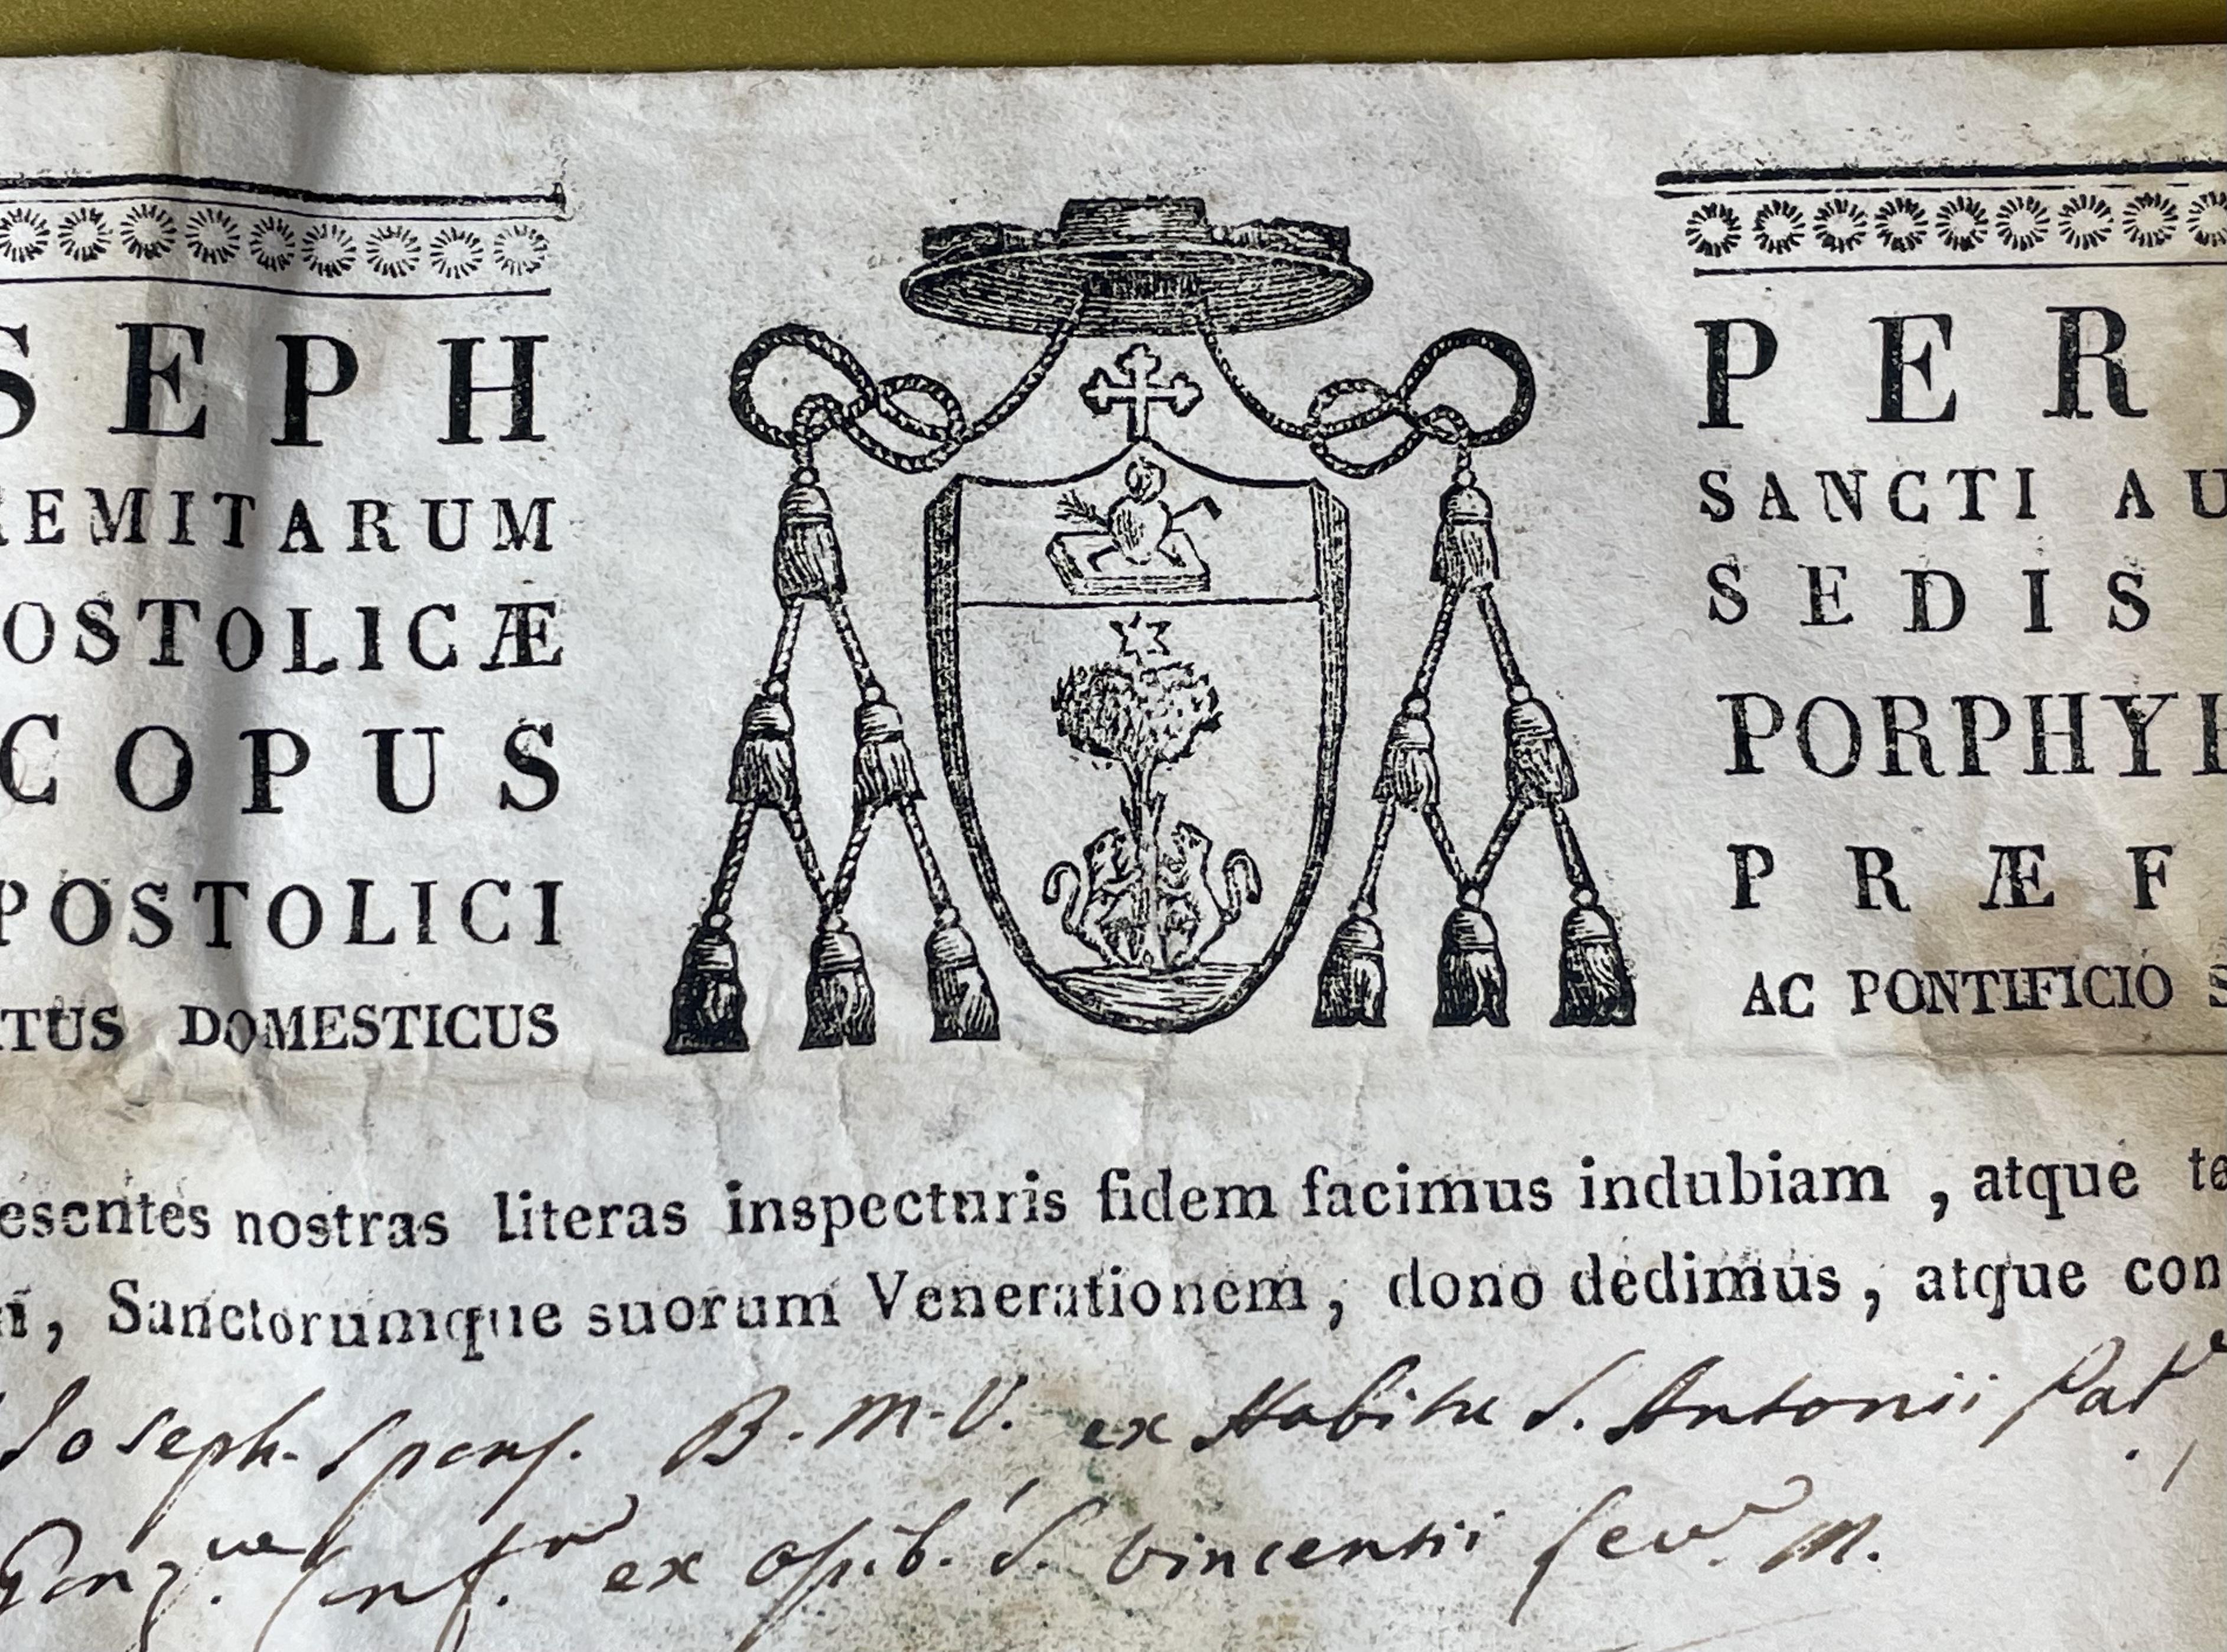 SEPH PER
REMITARUM SANCTI AU
OSTOLICÆ SEDIS
COPUS PORPHYR
POSTOLICI PRÆF
TUS DOMESTICUS AC PONTIFICIO S
esentes nostras literas inspecturis fidem facimus indubiam , atque te
i, Sanctorumque suorum Venerationem, dono dedimus, atque con
Joseph. Spons. B. M. V. ex Habitu S. Antonii Pat
Gonz. Conf. ex S. Vincentii M.